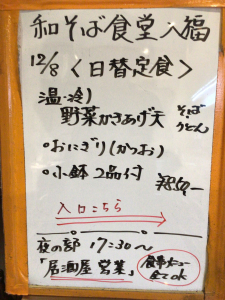 和そば食堂 入福
12/8 〈日替定食〉
温・冷)
野菜かきあげ天 そば
うどん
・おにぎり(かつお)
・小鉢2品付
入口こちら
夜の部 17:30〜
「居酒屋営業」
食事メニュー
全てOK